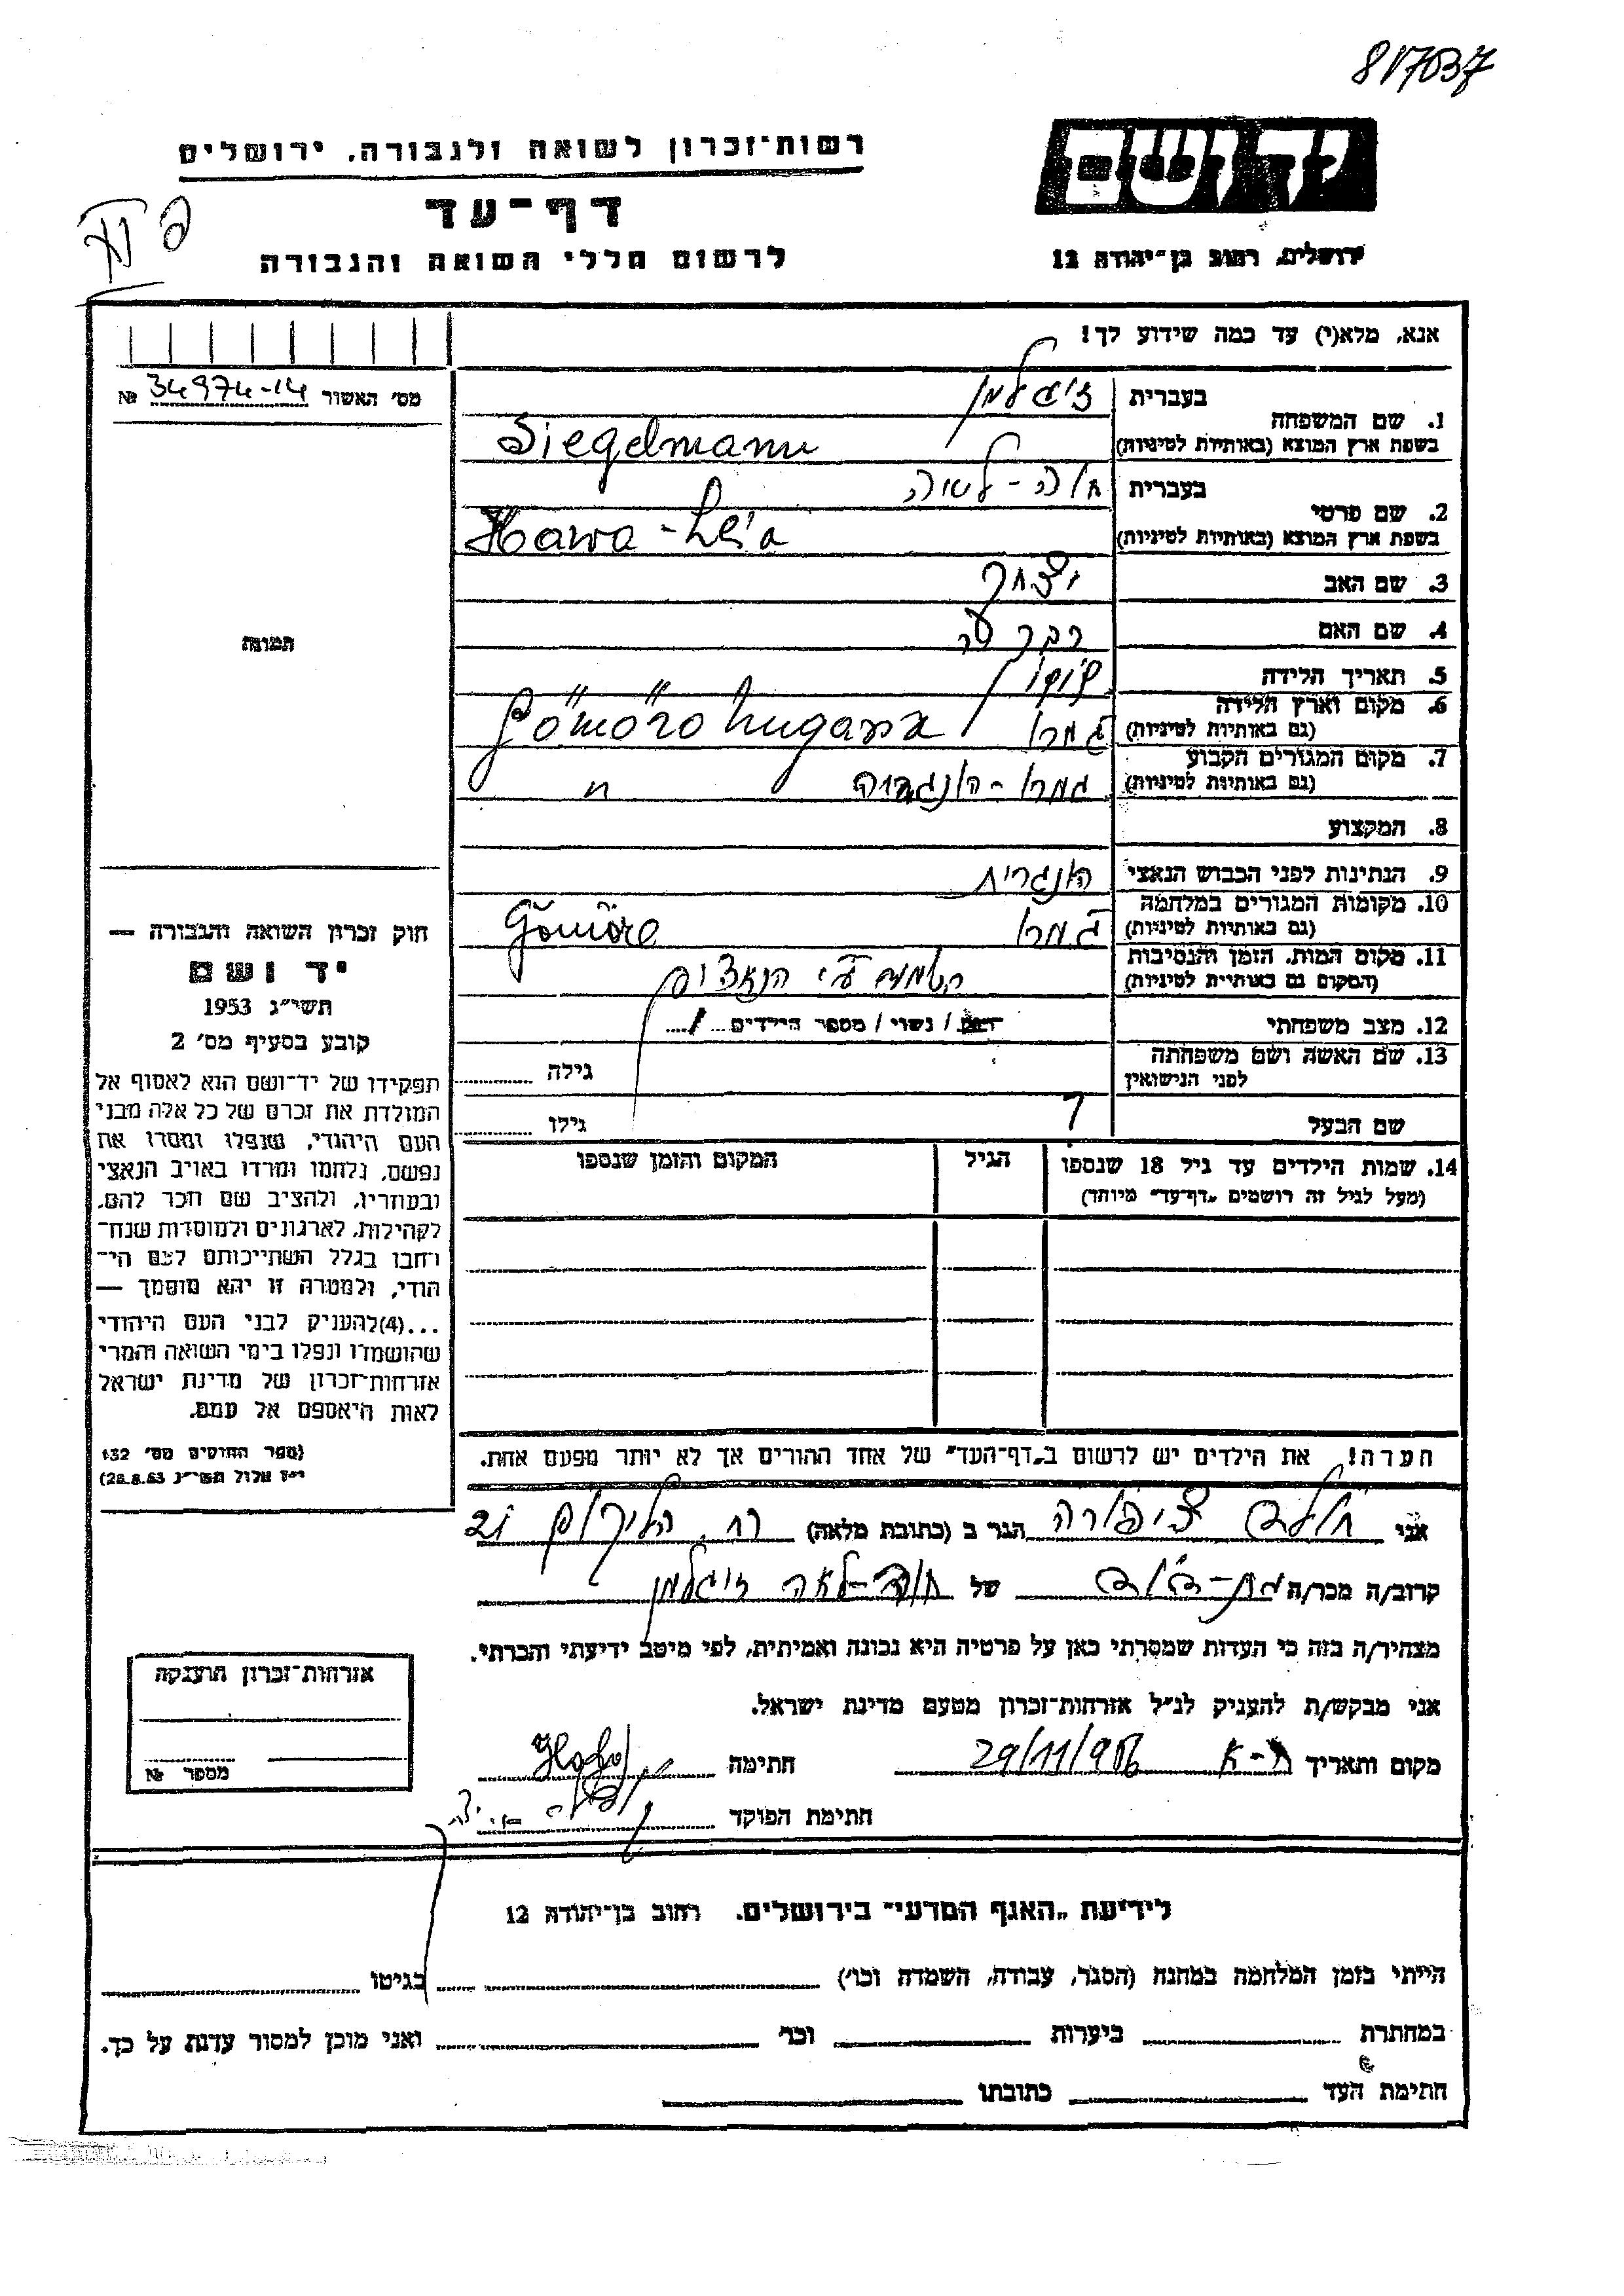 817037
יד ושם
ירושלים, רחוב בן־יהודה 12
רשות־זכרון לשואה ולגבורה, ירושלים
דף־עד
לרשום חללי השואה והגבורה
אנא, מלא(י) עד כמה שידוע לך!
מס׳ האשור № 34974-14
1. שם המשפחה בעברית זיגלמן
בשפת ארץ המוצא (באותיות לטיניות) Siegelmann
2. שם פרטי בעברית חוה-לאה
בשפת ארץ המוצא (באותיות לטיניות) Hawa-Léa
3. שם האב יצחק
4. שם האם
5. תאריך הלידה
6. מקום וארץ הלידה
(גם באותיות לטיניות) גמרו Gömörő hugaria
7. מקום המגורים הקבוע
(גם באותיות לטיניות) גמרו - הונגריה "
8. המקצוע
9. הנתינות לפני הכבוש הנאצי הונגרית
10. מקומות המגורים במלחמה
(גם באותיות לטיניות) גמרו Gömöre
11. מקום המות, הזמן והנסיבות
(המקום גם באותיית לטיניות) הושמדה ע״י הנאצים
12. מצב משפחתי רווק / נשוי / מספר הילדים
13. שם האשה ושם משפחתה
לפני הנישואין גילה
שם הבעל גילו
14. שמות הילדים עד גיל 18 שנספו הגיל המקום והזמן שנספו
(מעל לגיל זה רושמים „דף־עד״ מיוחד)
הערה! את הילדים יש לרשום ב„דף־העד״ של אחד ההורים אך לא יותר מפעם אחת.
תמונה
חוק זכרון השואה והגבורה —
יד ושם
תשי״ג 1953
קובע בסעיף מס׳ 2
תפקידו של יד־ושם הוא לאסוף אל
המולדת את זכרם של כל אלה מבני
העם היהודי, שנפלו ומסרו את
נפשם, נלחמו ומרדו באויב הנאצי
ובעוזריו, ולהציב שם וזכר להם,
לקהילות, לארגונים ולמוסדות שנח־
רחבו בגלל השתייכותם לעם הי־
הודי, ולמטרה זו יהא מוסמך —
...(4)להעניק לבני העם היהודי
שהושמדו ונפלו בימי השואה והמרי
אזרחות־זכרון של מדינת ישראל
לאות היאספם אל עמם.
(ספר החוקים מס׳ 132
י״ז אלול תשי״ג 28.8.53)
אני ציפורה הגר ב (כתובת מלאה) רח.
קרוב/ה מכר/ה בת-דודה של חוה-לאה זיגלמן
מצהיר/ה בזה כי העדות שמסרתי כאן על פרטיה היא נכונה ואמיתית, לפי מיטב ידיעתי והכרתי.
אני מבקש/ת להעניק לנ״ל אזרחות־זכרון מטעם מדינת ישראל.
מקום ותאריך ת-א 29/11/956 חתימה
חתימת הפוקד
אזרחות־זכרון הוענקה
מספר №
לידיעת „האגף המדעי״ בירושלים, רחוב בן־יהודה 12
הייתי בזמן המלחמה במחנה (הסגר, עבודה, השמדה וכו׳) בגיטו
במחתרת ביערות וכו׳ ואני מוכן למסור עדות על כך.
חתימת העד כתובתו